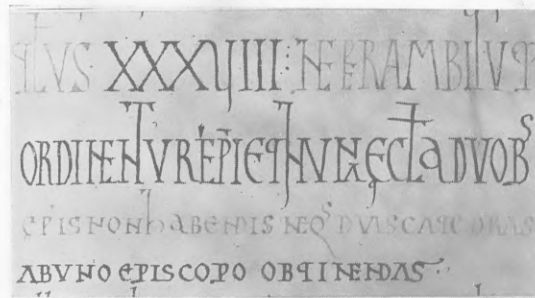 XXXVIIII: NE PER AMBITU
ORDINENTUR EPI ET IN UNA ECLA DUOBS
EPIS NON hABENDIS NEQS DUIS
ABUNO EPISCOPO OBTINENDAS